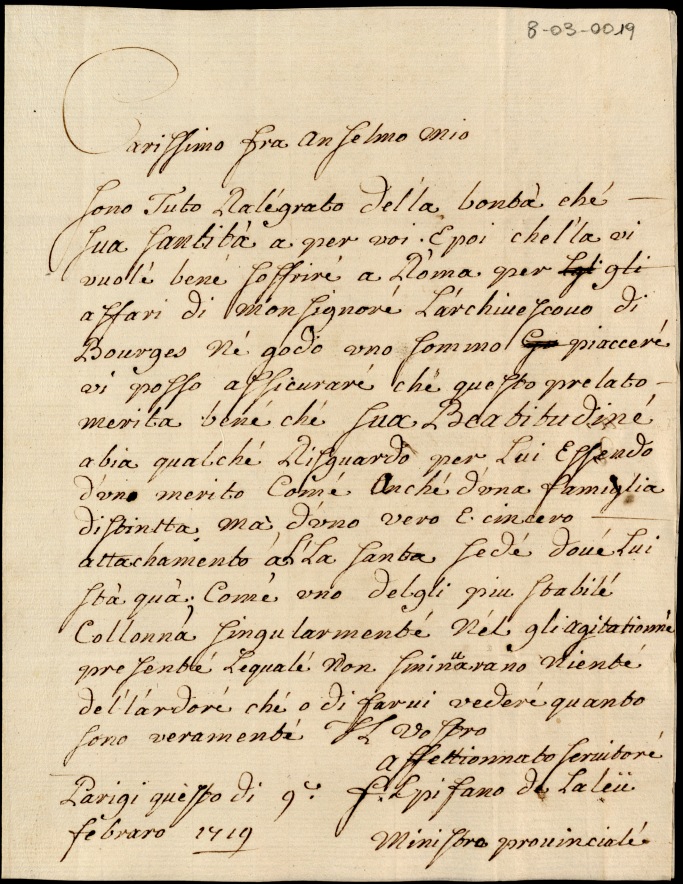 8-03-0019
Carissimo fra Anselmo mio
sono Tuto Ralégrato délla bontà ché
sua santità a per voi. Epoi chel'la vi
vuolé bené soffriré a Roma per gli
affari di Monsignoré L'archiuescouo di
Bourges Né godo vno sommo piacceré
vi posso assicuraré ché questo prelato
merita bené ché sua Beatitudiné
abia qualché Risguardo per Lui Essendo
d'vno merito Comé Anché d'vna famiglia
distintta, ma d'vno vero E cincero
attachamento a La santa sedé doué Lui
stà quà. Comé vno delgli piu stabilé
Collonna, singularmenté Nél gli agitationné
presenté Lequalé Non sminuarano Nienté
dell'ardoré ché o di farui vederé quanto
sono veramenté IL Vostro
Affettionnato seruitoré
Parigi questo di 9.e f. Epifano de Laleü
febraro 1719
Ministro prouincialé